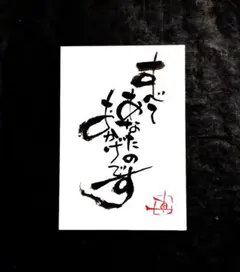 すべて
あなたの
おかげです